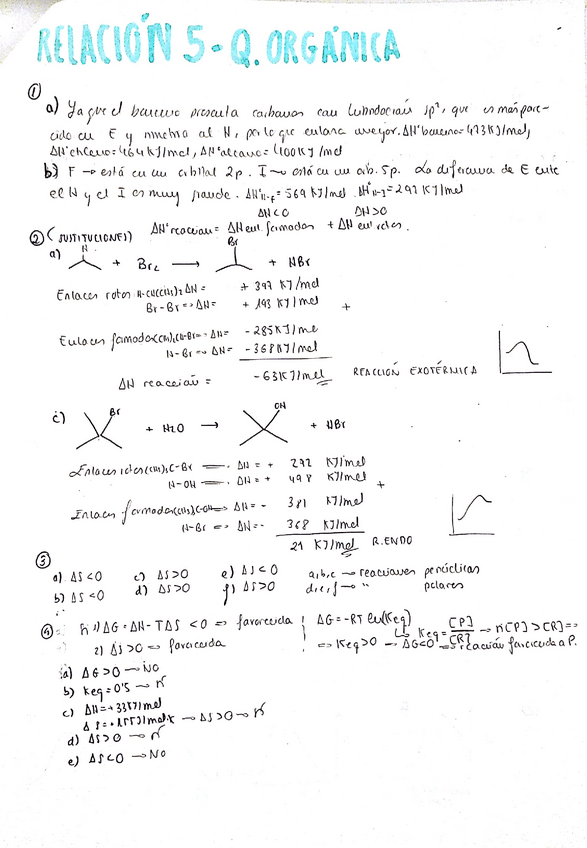 RELACIÓN 5 - Q. ORGÁNICA
①
a) Ya que el benceno presenta carbonos con hibridación sp², que es más pare-
cido en E y simetría al H, por lo que enlaza mejor. ΔH°benceno=473KJ/mol,
ΔH°etileno=464KJ/mol, ΔH°alcano=400KJ/mol
b) F → está en un orbital 2p. I → está en un orb. 5p. La diferencia de E entre
el H y el I es muy grande. ΔH°H-F=569 KJ/mol ΔH°H-I=297 KJ/mol
ΔH<0 ΔH>0
② (SUSTITUCIONES) ΔH°reacción = ΔH enl. formados + ΔH enl. rotos.
a) H + Br₂ → Br + HBr
Enlaces rotos H-CH(CH₃)₂ ΔH= +397 KJ/mol
Br-Br => ΔH= +193 KJ/mol +
Enlaces formados (CH₃)₂CH-Br => ΔH= -285KJ/mol
H-Br => ΔH= -368KJ/mol
ΔH reacción = -63KJ/mol REACCIÓN EXOTÉRMICA
c) Br + H₂O → OH + HBr
Enlaces rotos (CH₃)₃C-Br ΔH = + 292 KJ/mol
H-OH ΔH = + 498 KJ/mol +
Enlaces formados (CH₃)₃C-OH => ΔH= - 381 KJ/mol
H-Br => ΔH= - 368 KJ/mol
21 KJ/mol R.ENDO
③
a) ΔS<0 c) ΔS>0 e) ΔS<0 a,b,c → reacciones
b) ΔS<0 d) ΔS>0 f) ΔS>0 d,e,f → " polares
④ 1) ΔG=ΔH-TΔS <0 => favorecida ΔG=-RT ln(Keq)
Keq=[P]/[R] → [P]>[R] =>
2) ΔS>0 → favorecida => Keq>0 → ΔG<0 => reacción favorecida a P.
a) ΔG>0 → No
b) Keq=0'5 →
c) ΔH=+33KJ/mol
→ ΔS>0 →
d) ΔS>0 →
e) ΔS<0 → No